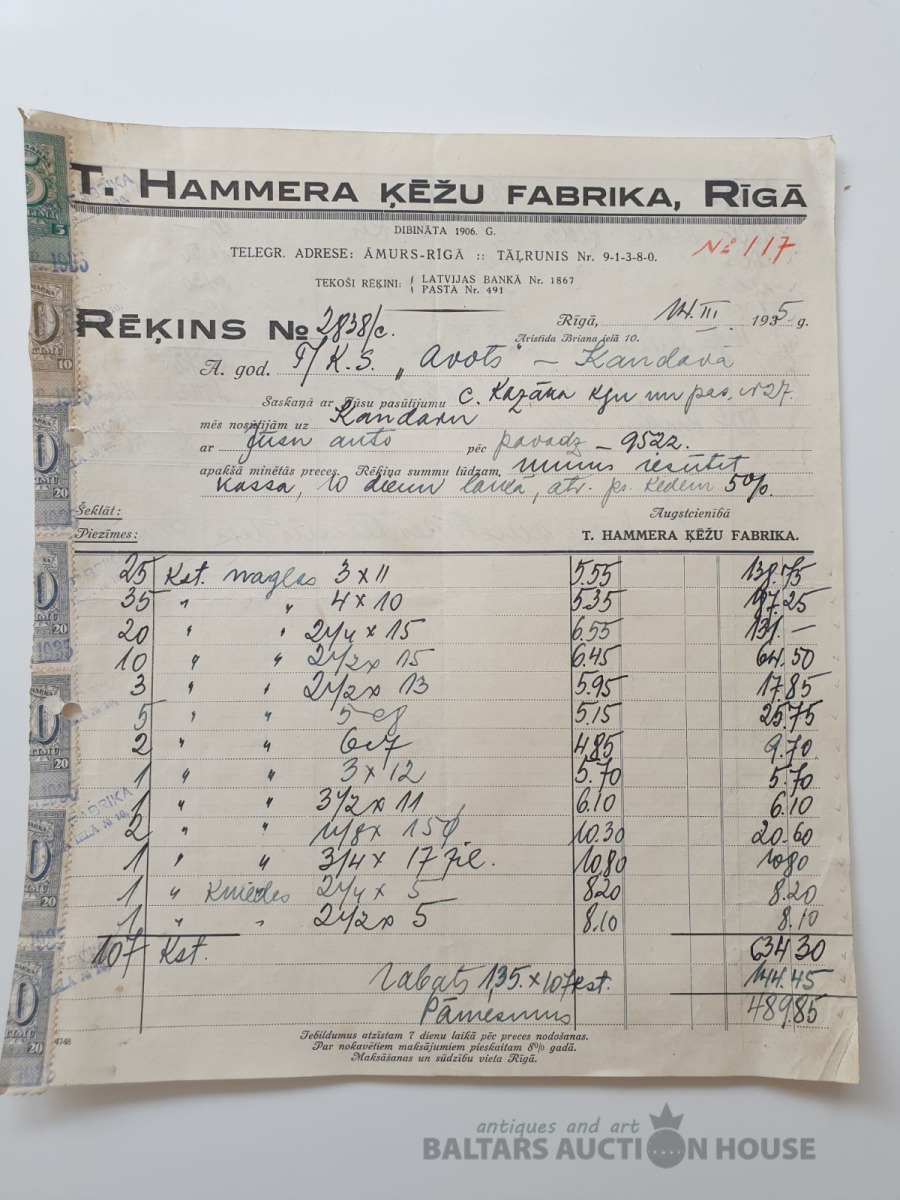 T. HAMMERA ĶĒŽU FABRIKA, RĪGĀ
DIBINĀTA 1906. G.
TELEGR. ADRESE: ĀMURS-RĪGĀ :: TĀĻRUNIS Nr. 9-1-3-8-0.
№ 117
TEKOŠI RĒĶINI: LATVIJAS BANKĀ Nr. 1867
PASTĀ Nr. 491
RĒĶINS № 2838/c.
Rīgā, 14. III. 1935 g.
Aristīda Briana ielā 10.
A. god. K.S. "Avots" – Kandavā
Saskaņā ar Jūsu pasūtījumu c. Kazāka kgu un pas. nr 27.
mēs nosūtījām uz Kandavu
ar Jūsu auto pēc pavadz – 9522.
apakšā minētās preces. Rēķina summu lūdzam, mums iesūtīt
kassa, 10 dienu laikā, atv. ķēdēm 5%.
Šeklāt:
Augstcienībā
Piezīmes:
T. HAMMERA ĶĒŽU FABRIKA.
25 Kst. naglas 3 x 11 5.55 138.75
35 " " 4 x 10 5.35 187.25
20 " " 2 1/4 x 15 6.55 131.—
10 " " 2 1/2 x 15 6.45 64.50
3 " " 2 1/2 x 13 5.95 17.85
5 " " 5 5.15 25.75
2 " " 4.85 9.70
1 " " 3 x 12 5.70 5.70
1 " " 3 1/2 x 11 6.10 6.10
2 " " 1 1/8 x 15 10.30 20.60
1 " " 3/4 x 17 zil. 10.80 10.80
1 " Kniedes 2 1/4 x 5 8.20 8.20
1 " " 2 1/2 x 5 8.10 8.10
107 Kst. 634.30
rabats 1,35. x 107 kst. 144.45
489.85
4748
Iebildumus atzīstam 7 dienu laikā pēc preces nodošanas.
Par nokavētiem maksājumiem pieskaitam 8% gadā.
Maksāšanas un sūdzību vieta Rīgā.
5
10
20
20
20
20
antiques and art
BALTARS AUCTION HOUSE